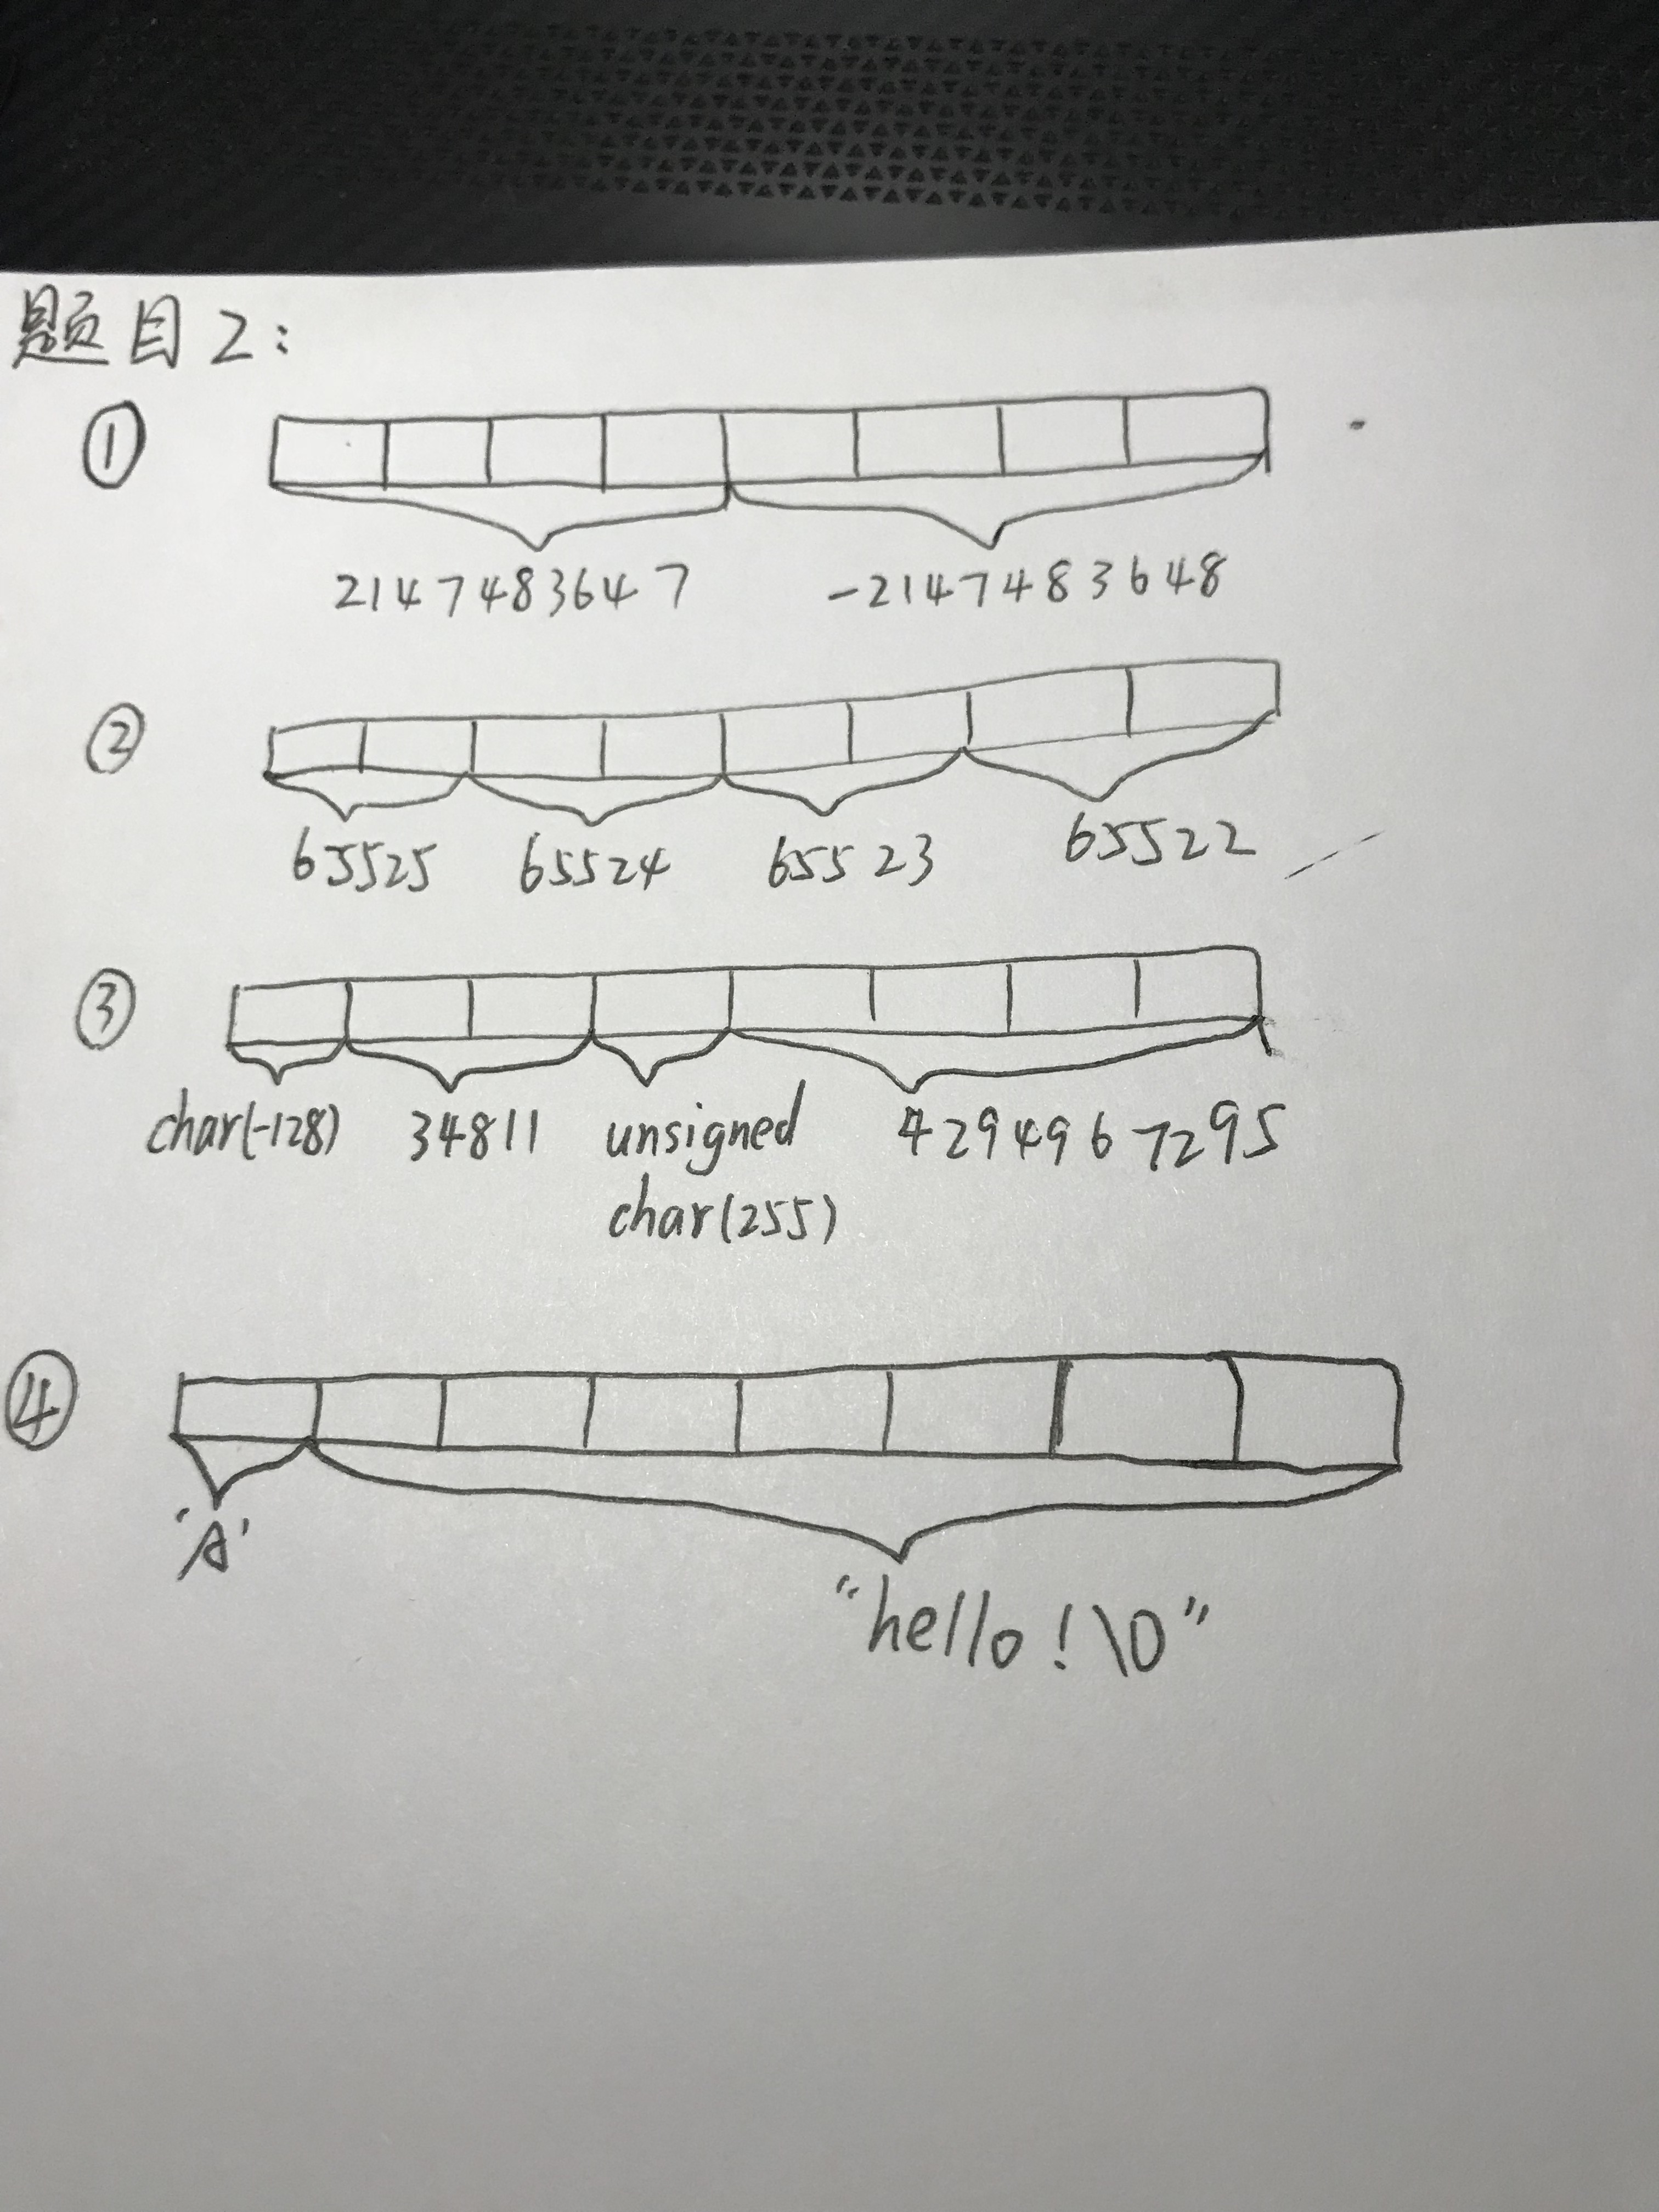 题目2:
①
2147483647 -2147483648
②
65525 65524 65523 65522
③
char(-128) 34811 unsigned 4294967295
char(255)
④
'A'
"hello!\0"